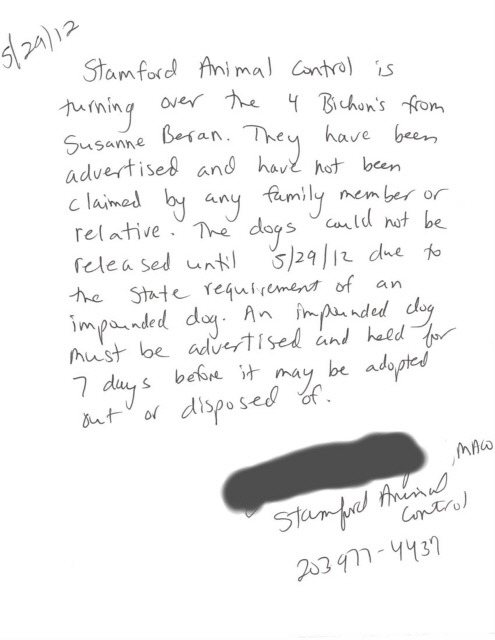 5/29/12
Stamford Animal Control is
turning over the 4 Bichon's from
Susanne Beran. They have been
advertised and have not been
claimed by any family member or
relative. The dogs could not be
released until 5/29/12 due to
the State requirement of an
impounded dog. An impounded dog
must be advertised and held for
7 days before it may be adopted
out or disposed of.
, MACO
Stamford Animal
Control
203 977-4437